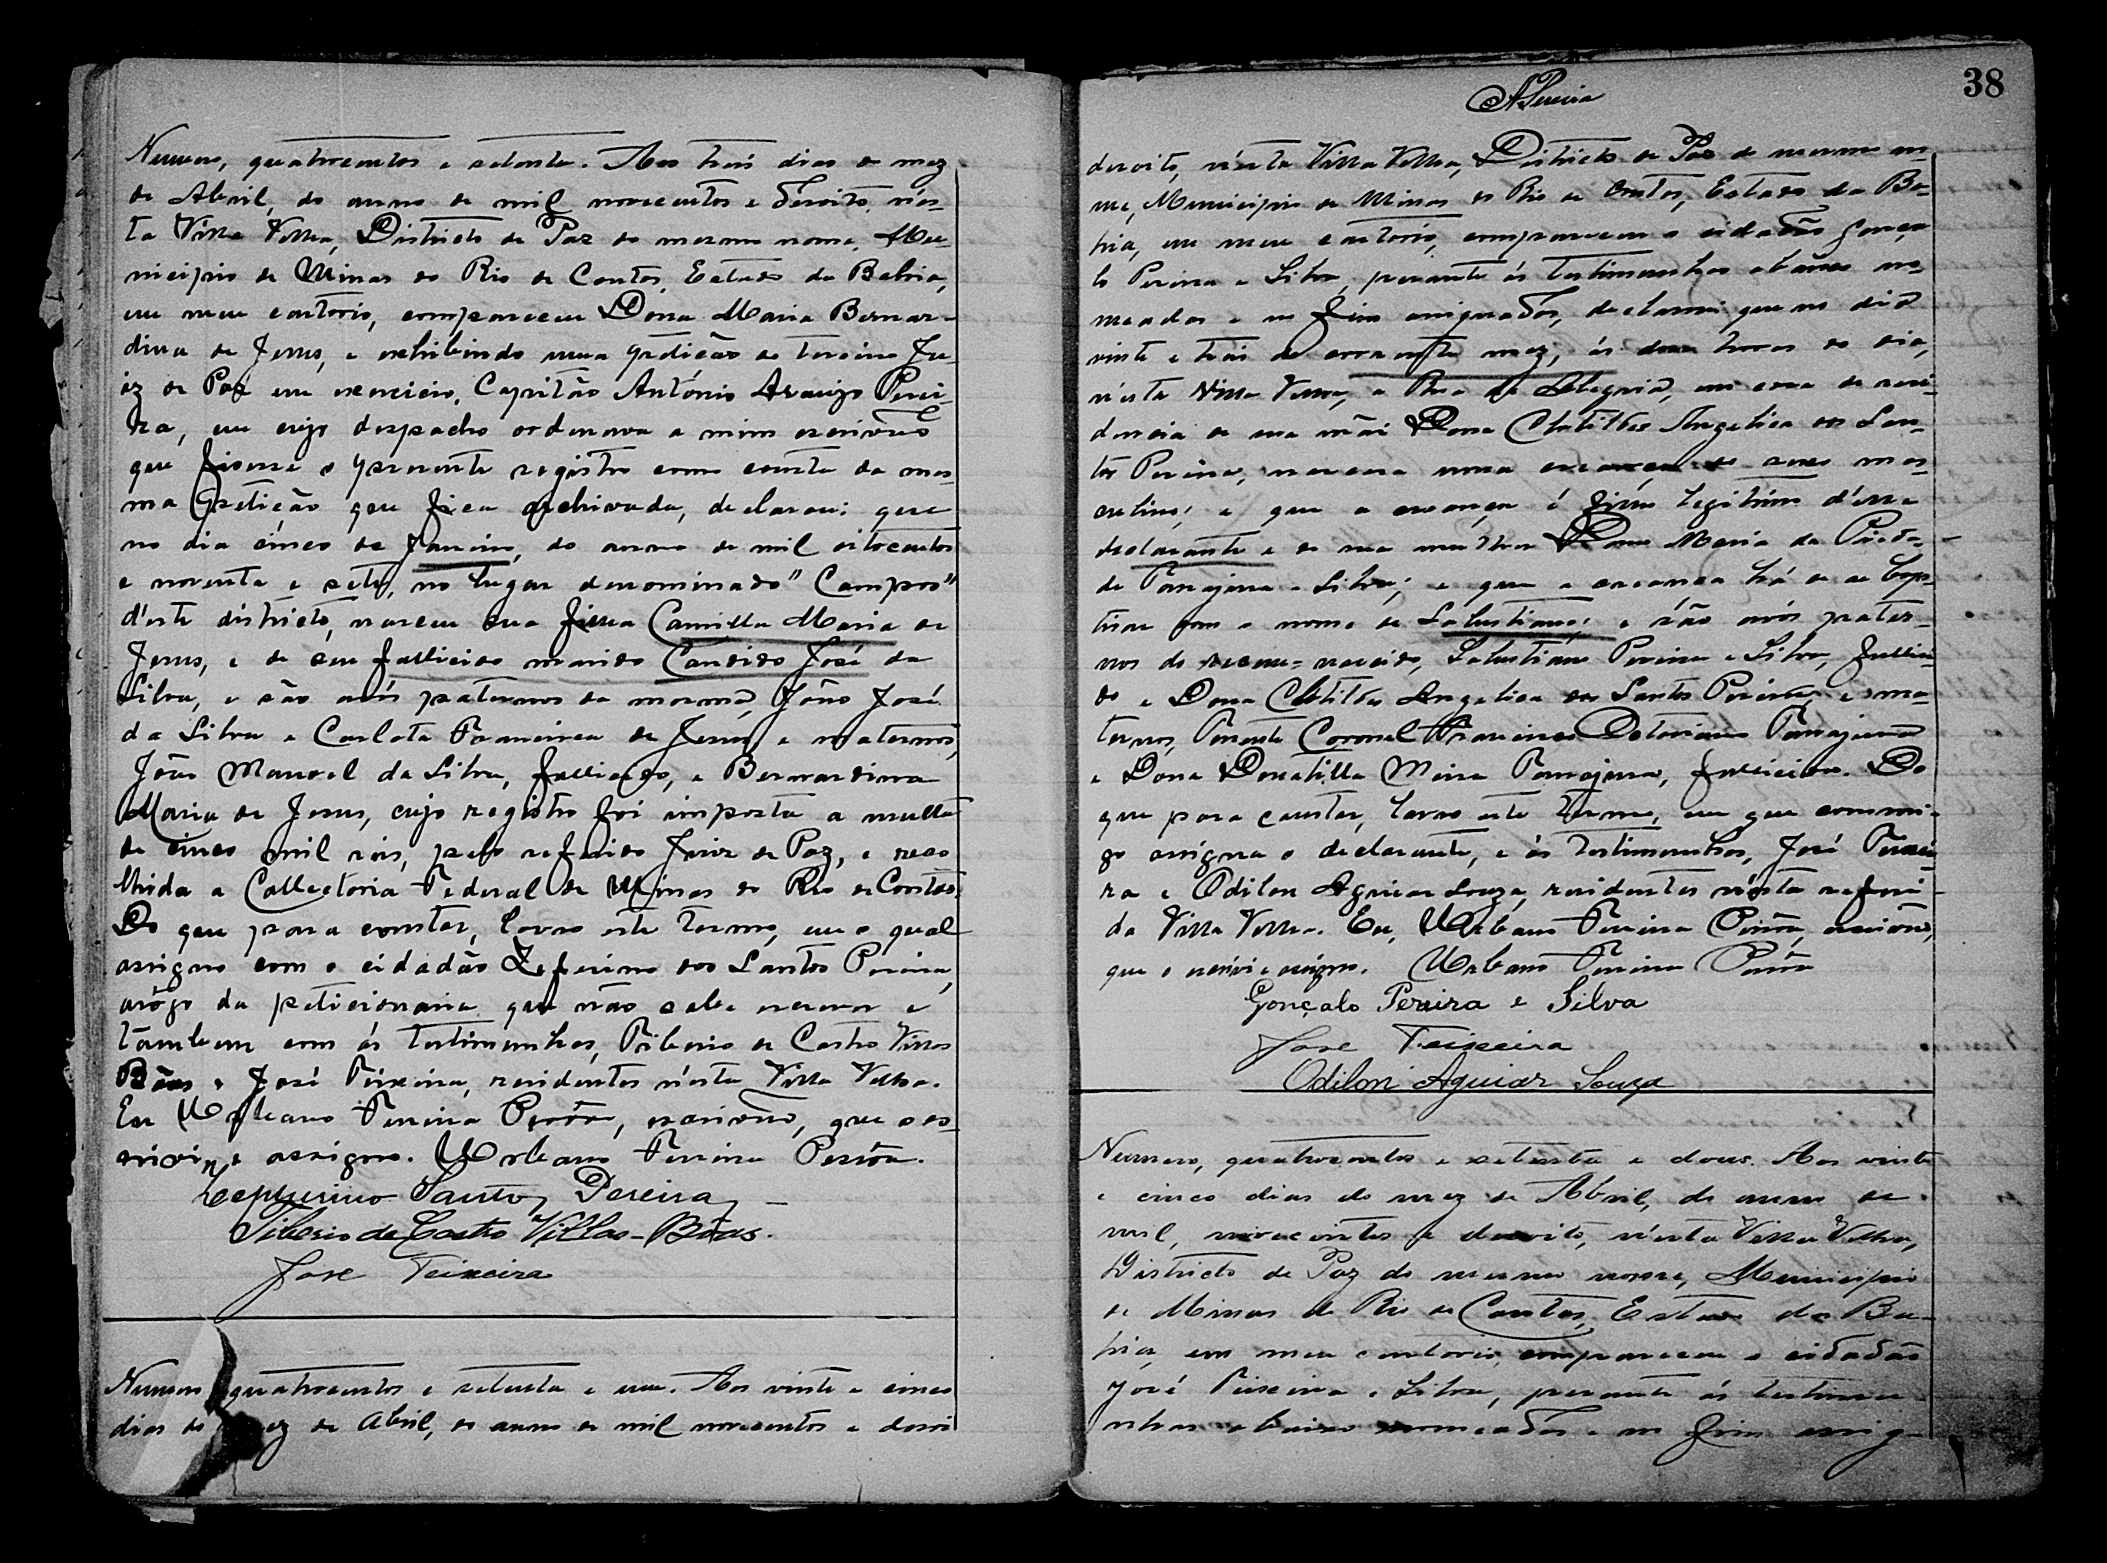 Numero, quatrocentos e setenta. Aos treis dias do mez
de Abril, do anno de mil novecentos e desoito, nes-
ta Villa Velha, Districto de Paz do mesmo nome, Mu-
nicipio de Minas do Rio de Contas, Estado da Bahia,
em meu cartorio, compareceu Dona Maria Bernar-
dina de Jesus, e exhibindo uma petição ao terceiro Ju-
iz de Paz em exercicio, Capitão Antônio Araujo Perei-
ra, em cujo despacho ordenava a mim escrivão
que fisesse o presente registro como consta da mes-
ma petição que fica archivada, declarou: que
no dia cinco de Janeiro, do anno de mil oitocentos
e noventa e sete, no lugar denominado "Campos"
d'este districto, nasceu sua filha Camilla Maria de
Jesus, e de seu fallecido marido Candido José da
Silva, e são avós paternos da mesma, João José
da Silva e Carlota Francisca de Jesus, e maternos,
João Manoel da Silva, fallecido, e Bernardina
Maria de Jesus, cujo registro foi imposta a multa
de cinco mil reis, pelo referido Juiz de Paz, e reco
lhida a Collectoria Federal de Minas do Rio de Contas.
Do que para constar, lavro este termo, em o qual
assigno com o cidadão Zeferino dos Santos Pereira,
arôgo da peticionaria que não sabe escrever e
tambem com ás testimunhas, Tiberio de Castro Villas
Bôas e José Teixeira, residentes n'esta Villa Velha.
Eu Urbano Ferreira, escrivão, que o es-
crivi e assigno. Urbano Ferreira
Zepherino Santos Pereira
Tiberio de Castro Villas-Bôas.
Jose Teixeira
Numero quatrocentos e setenta e um. Aos vinte e cinco
dias do mez de Abril, do anno de mil novecentos e desoi
38
APereira
desoito, n'esta Villa Velha, Districto de Paz do mesmo no-
me, Municipio de Minas do Rio de Contas, Estado da Ba-
hia, em meu cartorio, compareceu o cidadão Gonça
lo Pereira e Silva, perante ás testimunhas abaixo no-
meadas e no fim assignados, declarou: que no dia
vinte e treis do corrente mez, ás horas do dia,
n'esta Villa Velha, a Rua da Alegria, em casa de resi-
dencia de sua mãi Dona Clotildes Angelica dos San-
tos Pereira, nascera uma creança do sexo mas-
culino; e que a creança é filho legitimo d'esse
declarante e de sua mulher Dona Maria da Pieda-
de Tanajura e Silva; e que a creança há de se bap-
tisar com o nome de Salustiano; e são avós pater-
nos do recem-nascido, Salustiano Pereira e Silva, falleci-
do e Dona Clotildes Angelica dos Santos Pereira, e ma-
ternos, Tenente Coronel Francisco Octaviano Tanajura
e Dona Donatilla Meira Tanajura, fallecida. Do
que para constar, lavro este termo, em que commi-
go assigna o declarante, e ás testimunhas, José Teixei-
ra e Odilon Aguiar Souza, residentes n'esta referi-
da Villa Velha. Eu, Urbano Ferreira, escrivão,
que o escrivi e assigno. Urbano Ferreira
Gonçalo Pereira e Silva
Jose Teixeira
Odilon Aguiar Souza
Numero, quatrocentos e setenta e dous. Aos vinte
e cinco dias do mez de Abril, do anno de
mil, novecentos e desoito, n'esta Villa Velha,
Districto de Paz do mesmo nome, Municipio
de Minas do Rio de Contas, Estado da Ba-
hia, em meu cartorio, compareceu o cidadão
José Teixeira e Silva, perante ás testimu-
nhas abaixo nomeadas e no fim assig-